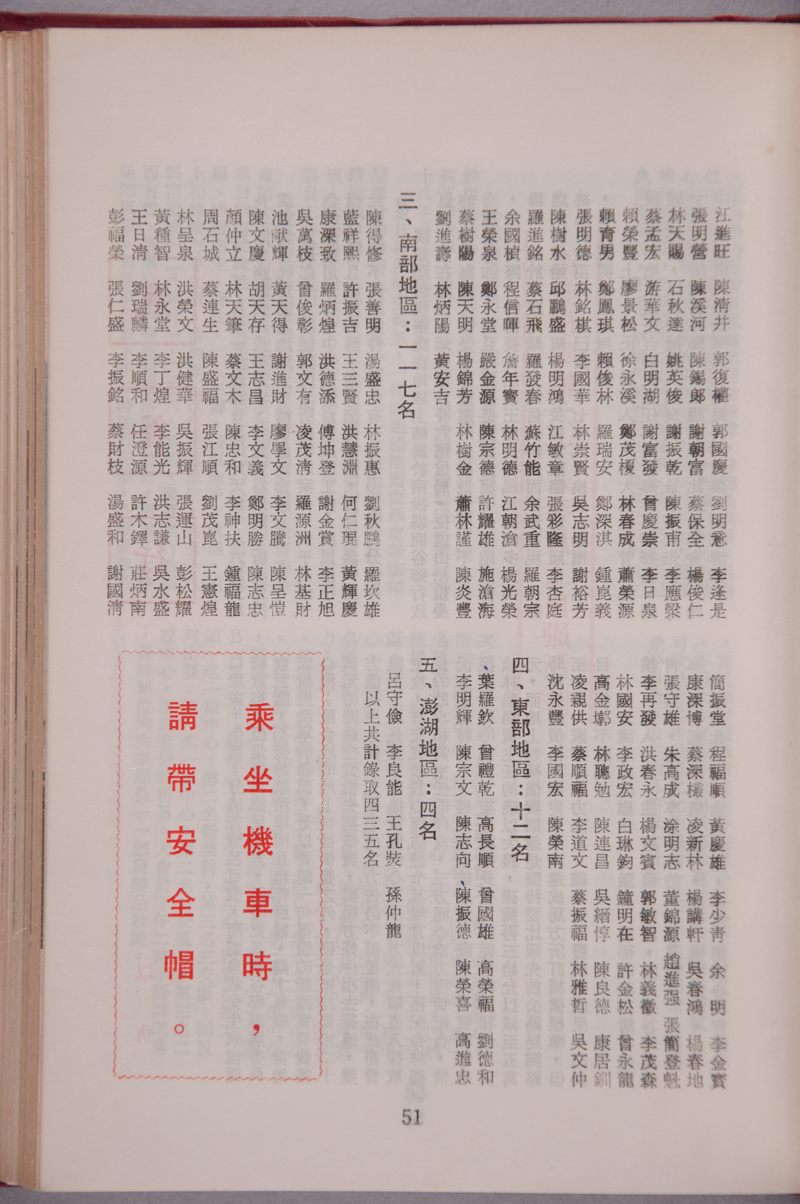 江進旺 陳清井 郭復權 郭國慶 劉明意 李逢是
張明營 陳溪河 陳錫郎 謝朝富 蔡保全 楊俊仁
林天賜 石秋蓬 姚英俊 謝振乾 陳振甫 李應梁
蔡孟宏 游華文 白明湖 謝富發 曾慶崇 李日泉
賴榮豐 廖景松 徐永溪 鄭茂榎 林春成 蕭榮源
賴育男 鄭鳳琪 賴俊林 羅瑞安 鄭深淇 鍾崑義
張明德 林銘棋 李國華 林崇賢 吳志明 謝裕芳
陳樹水 邱鵬盛 楊明鴻 江敏章 張彩隆 李杏庭
羅進銘 蔡石飛 羅發春 蘇竹能 余武重 羅朝宗
余國楨 程信暉 詹年實 林明德 江朝滄 楊光榮
王榮泉 鄭永堂 嚴金源 陳宗德 許耀雄 施滄海
蔡樹陽 陳天明 楊錦芳 林樹金 蕭林謹 陳炎豐
劉進壽 林炳陽 黃安吉
三、南部地區：一一七名
陳得修 張善明 湯盛忠 林振惠 劉秋鵬 羅坎雄
藍祥熙 許振吉 王三賢 洪慧淵 何仁琨 黃輝慶
康深致 羅炳煌 洪德添 傅坤登 謝金賞 李正旭
吳萬枝 曾俊彰 郭文有 凌茂清 羅源洲 林基財
池献輝 黃天得 謝進財 廖學文 李文騰 陳呈愷
陳文慶 胡天存 王志昌 李文義 鄭明勝 陳志忠
顏仲立 林天筆 蔡文木 陳忠和 李神扶 鐘福龍
周石城 蔡連生 陳盛福 張江順 劉茂崑 王憲煌
林呈泉 洪榮文 洪健華 吳振輝 張運山 彭松耀
黃種智 林永堂 李丁煌 李能光 洪志謙 吳水盛
王日清 劉瑞麟 李順和 任澄源 許木鐸 莊炳南
彭福榮 張仁盛 李振銘 蔡財枝 湯盛和 謝國清
簡振堂 程福順 黃慶雄 李少青 余　明 李金寶
康深博 蔡深欉 凌新林 楊講軒 吳春鴻 楊春地
張守雄 朱高成 涂明志 董錦源 趙進强 張簡登魁
李再發 洪春永 楊文賓 郭敏智 林義徽 李茂森
林國安 李政宏 白琳鈞 鐘明在 許金松 曾永龍
高金鄣 林聰勉 陳連昌 吳縉惇 陳良德 康居釧
凌親供 蔡順福 李道文 蔡振福 林雅哲 吳文仲
沈永豐 李國宏 陳榮南
四、東部地區：十二名
葉羅欽 曾禮乾 高長順 曾國雄 高榮福 劉德和
李明輝 陳宗文 陳志向 陳振德 陳榮喜 高進忠
五、澎湖地區：四名
呂守儉 李良能 王孔奘 孫仲龍
以上共計錄取四三五名
乘坐機車時，
請帶安全帽。
51